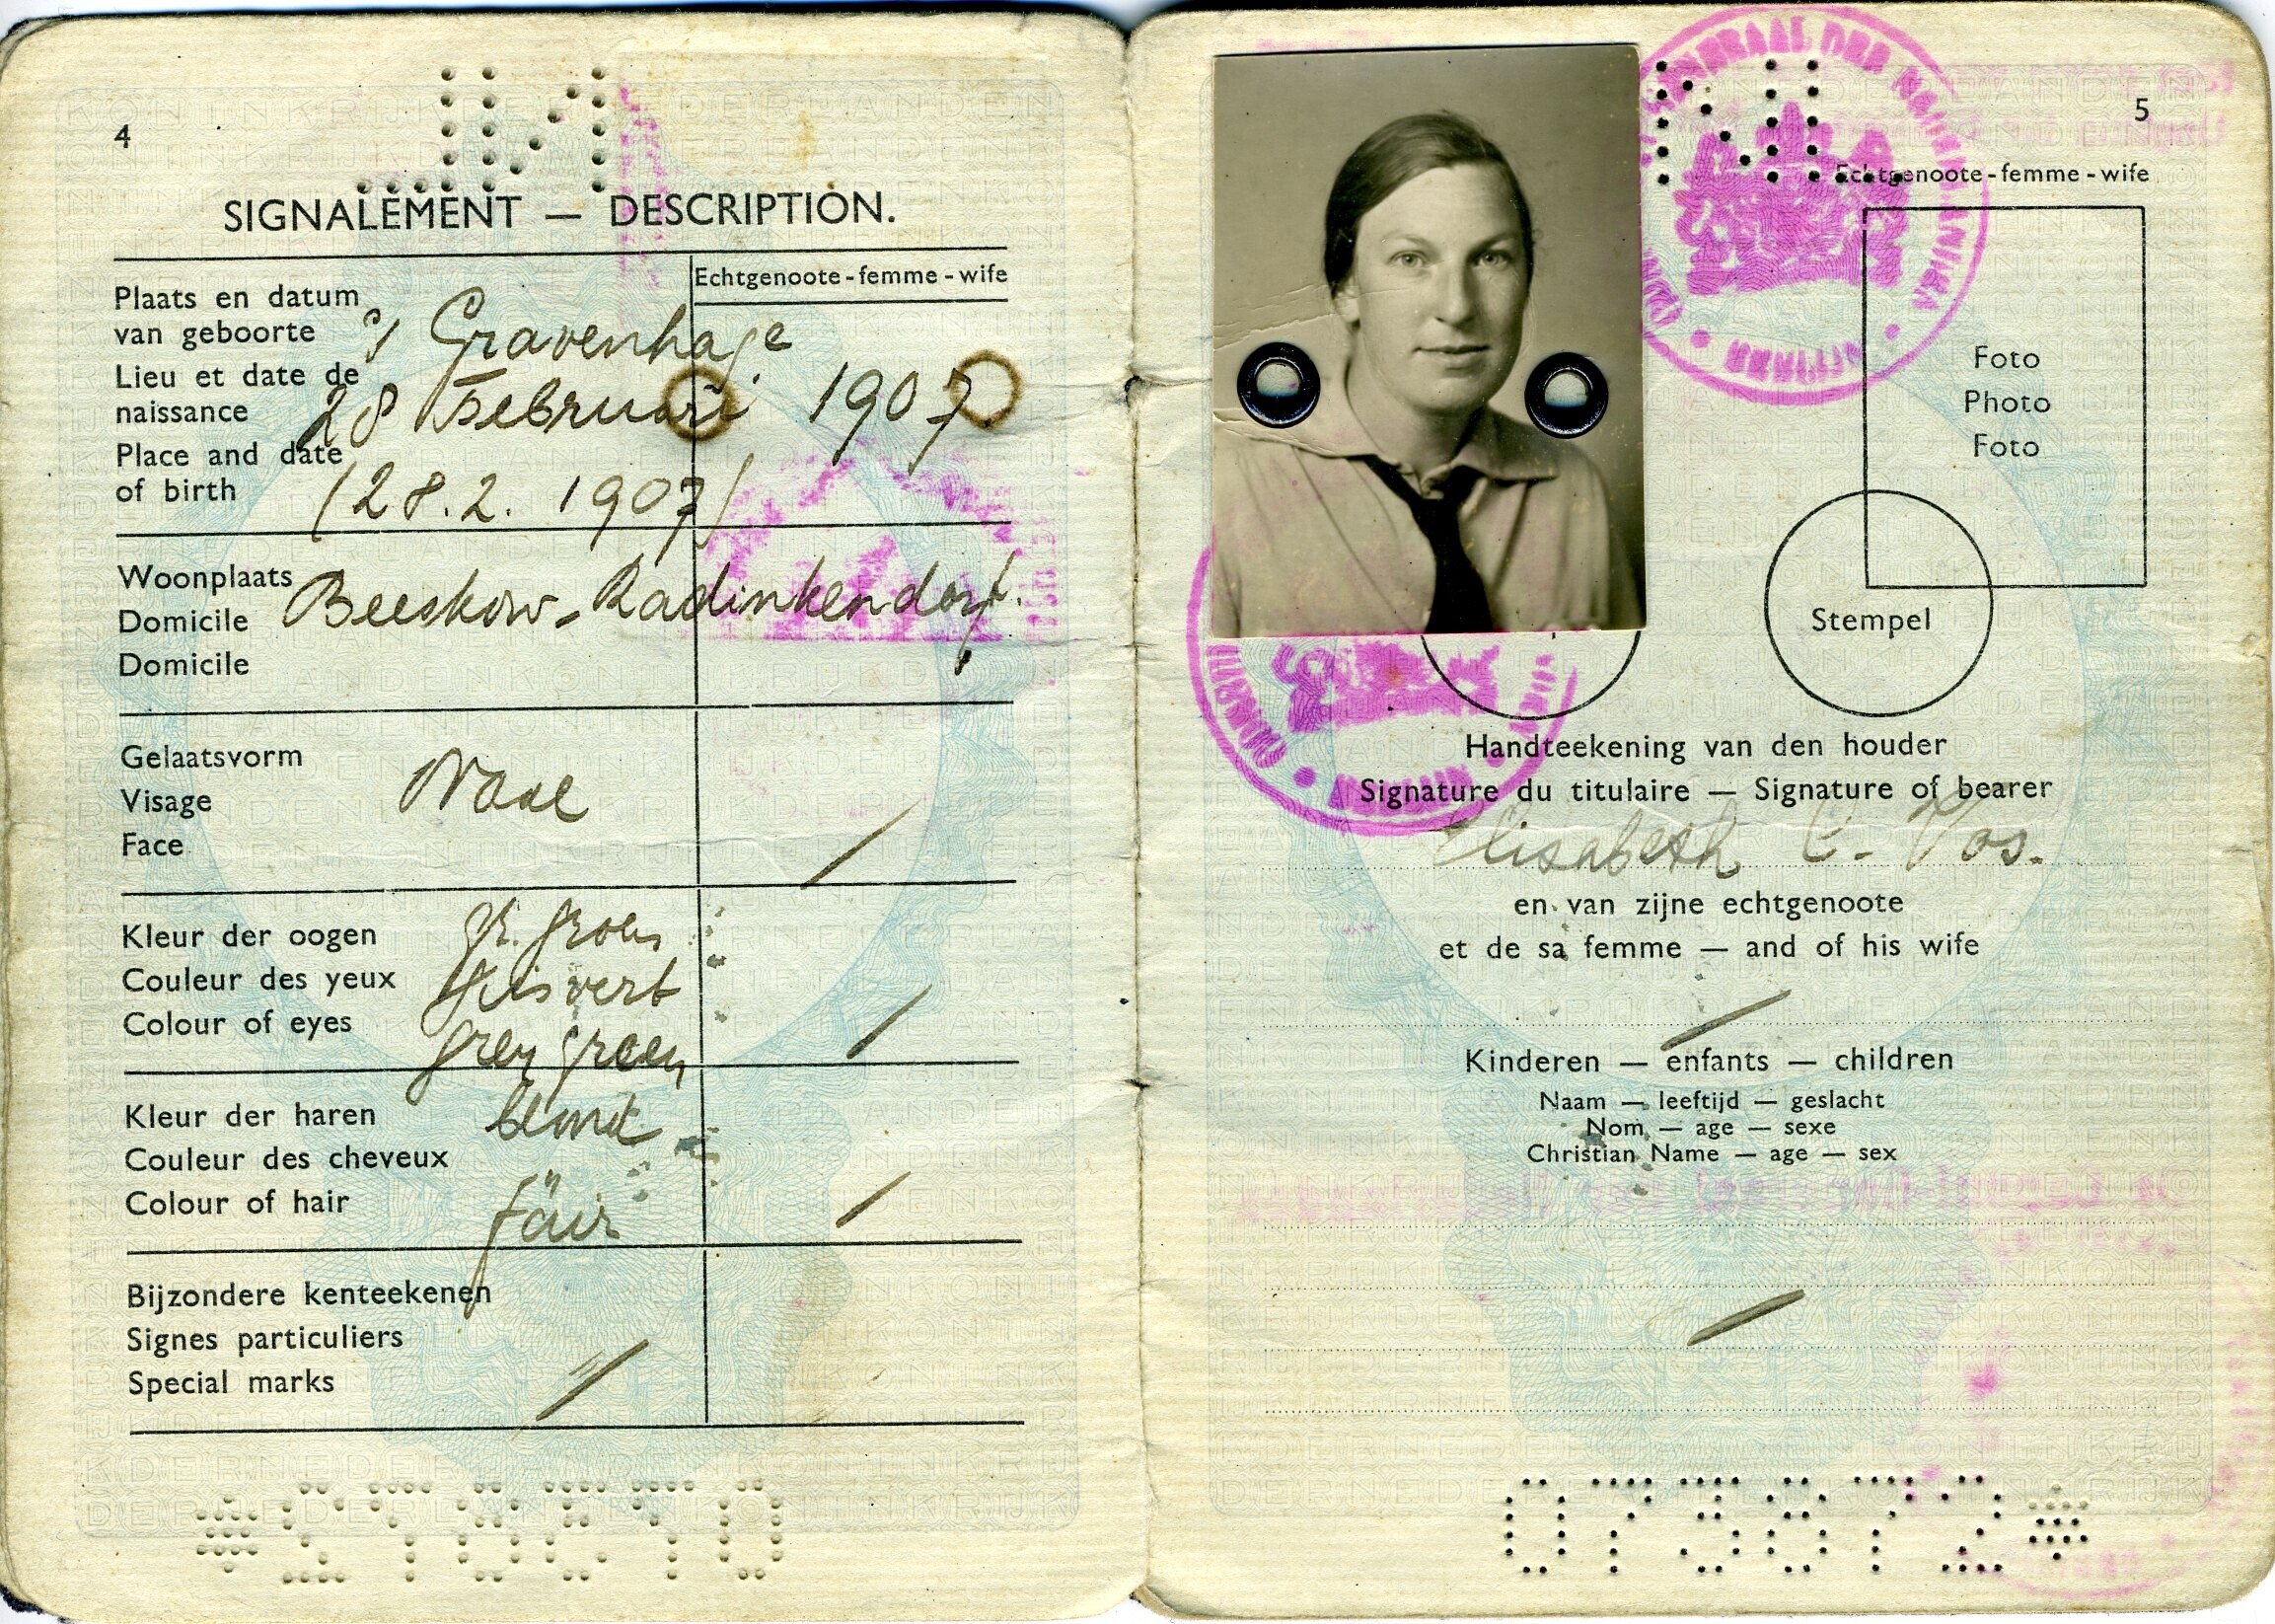 4
SIGNALEMENT — DESCRIPTION.
Echtgenoote - femme - wife
Plaats en datum
van geboorte
Lieu et date de
naissance
Place and date
of birth
's Gravenhage
28 Februari 1907
(28.2. 1907)
Woonplaats
Domicile
Domicile
Beeskow - Radinkendorf.
Gelaatsvorm
Visage
Face
Kleur der oogen
Couleur des yeux
Colour of eyes
gr. groen
gris vert
grey green
Kleur der haren
Couleur des cheveux
Colour of hair
blond
fair
Bijzondere kenteekenen
Signes particuliers
Special marks
5
Echtgenoote - femme - wife
Foto
Photo
Foto
Stempel
BERLIJN
Handteekening van den houder
Signature du titulaire — Signature of bearer
Elisabeth C. Vos.
en van zijne echtgenoote
et de sa femme — and of his wife
Kinderen — enfants — children
Naam — leeftijd — geslacht
Nom — age — sexe
Christian Name — age — sex
073872